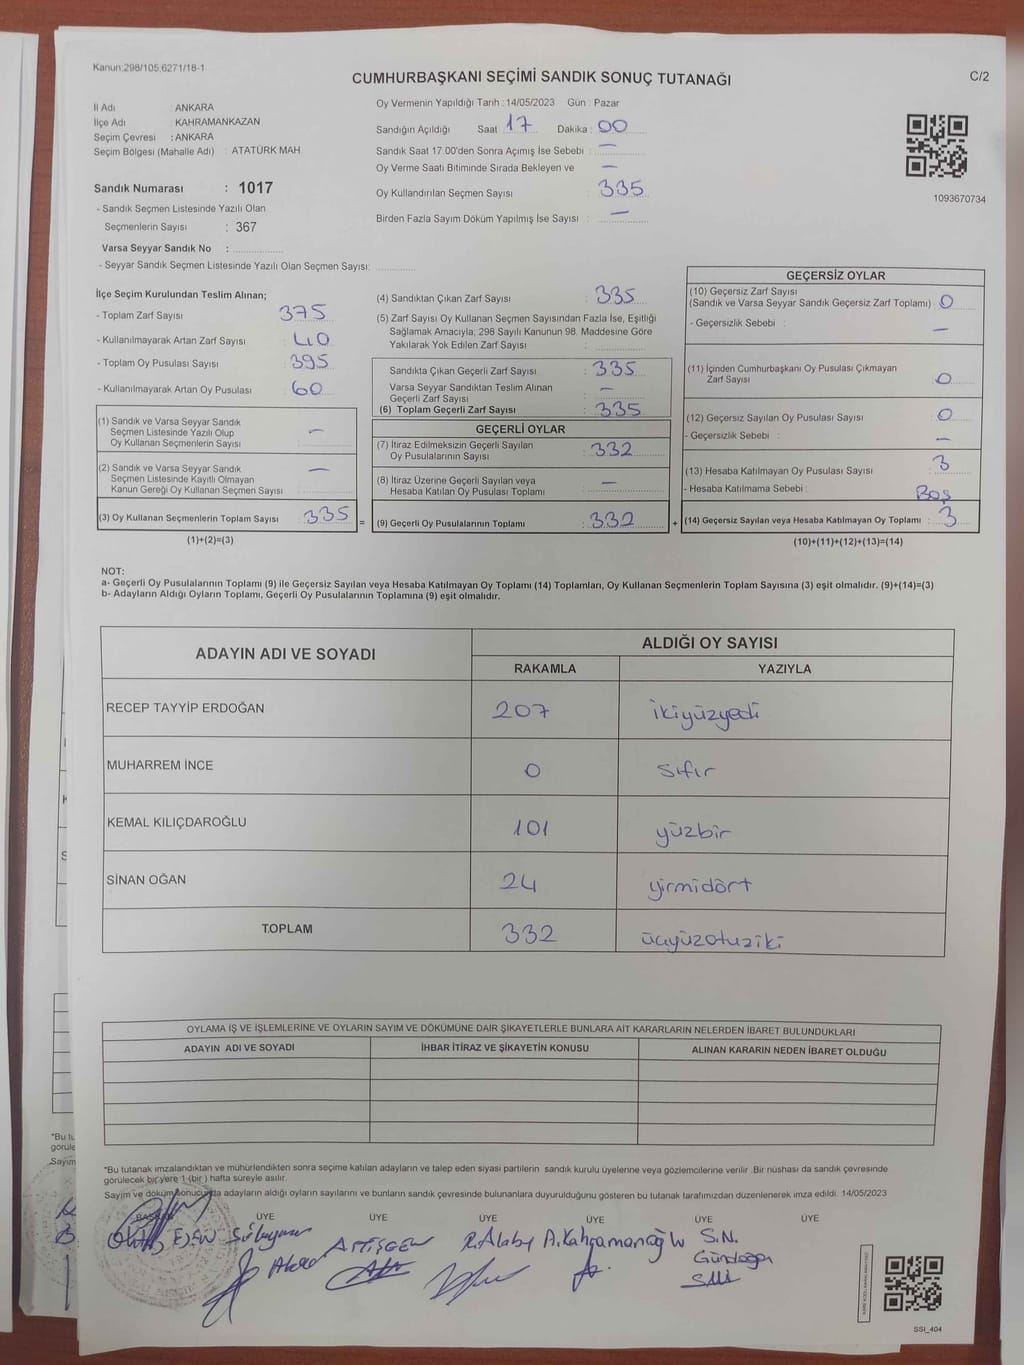 Kanun:298/105;6271/18-1
CUMHURBAŞKANI SEÇİMİ SANDIK SONUÇ TUTANAĞI
C/2
İl Adı : ANKARA
İlçe Adı : KAHRAMANKAZAN
Seçim Çevresi : ANKARA
Seçim Bölgesi (Mahalle Adı) : ATATÜRK MAH.
Sandık Numarası : 1017
- Sandık Seçmen Listesinde Yazılı Olan
Seçmenlerin Sayısı : 367
Varsa Seyyar Sandık No :
- Seyyar Sandık Seçmen Listesinde Yazılı Olan Seçmen Sayısı:
Oy Vermenin Yapıldığı Tarih : 14/05/2023 Gün : Pazar
Sandığın Açıldığı Saat 17 Dakika : 00
Sandık Saat 17.00'den Sonra Açımış İse Sebebi : —
Oy Verme Saati Bitiminde Sırada Bekleyen ve —
Oy Kullandırılan Seçmen Sayısı : 335
Birden Fazla Sayım Döküm Yapılmış İse Sayısı : —
1093670734
İlçe Seçim Kurulundan Teslim Alınan;
- Toplam Zarf Sayısı : 375
- Kullanılmayarak Artan Zarf Sayısı : 40
- Toplam Oy Pusulası Sayısı : 395
- Kullanılmayarak Artan Oy Pusulası : 60
(1) Sandık ve Varsa Seyyar Sandık
Seçmen Listesinde Yazılı Olup
Oy Kullanan Seçmenlerin Sayısı : —
(2) Sandık ve Varsa Seyyar Sandık
Seçmen Listesinde Kayıtlı Olmayan
Kanun Gereği Oy Kullanan Seçmen Sayısı : —
(3) Oy Kullanan Seçmenlerin Toplam Sayısı : 335 =
(1)+(2)=(3)
(4) Sandıktan Çıkan Zarf Sayısı : 335
(5) Zarf Sayısı Oy Kullanan Seçmen Sayısından Fazla İse, Eşitliği
Sağlamak Amacıyla; 298 Sayılı Kanunun 98. Maddesine Göre
Yakılarak Yok Edilen Zarf Sayısı :
Sandıkta Çıkan Geçerli Zarf Sayısı : 335
Varsa Seyyar Sandıktan Teslim Alınan
Geçerli Zarf Sayısı : —
(6) Toplam Geçerli Zarf Sayısı : 335
GEÇERLİ OYLAR
(7) İtiraz Edilmeksizin Geçerli Sayılan
Oy Pusulalarının Sayısı : 332
(8) İtiraz Üzerine Geçerli Sayılan veya
Hesaba Katılan Oy Pusulası Toplamı : —
(9) Geçerli Oy Pusulalarının Toplamı : 332 +
GEÇERSİZ OYLAR
(10) Geçersiz Zarf Sayısı
(Sandık ve Varsa Seyyar Sandık Geçersiz Zarf Toplamı) : 0
- Geçersizlik Sebebi : —
(11) İçinden Cumhurbaşkanı Oy Pusulası Çıkmayan
Zarf Sayısı : 0
(12) Geçersiz Sayılan Oy Pusulası Sayısı : 0
- Geçersizlik Sebebi : —
(13) Hesaba Katılmayan Oy Pusulası Sayısı : 3
- Hesaba Katılmama Sebebi : Boş
(14) Geçersiz Sayılan veya Hesaba Katılmayan Oy Toplamı : 3
(10)+(11)+(12)+(13)=(14)
NOT:
a- Geçerli Oy Pusulalarının Toplamı (9) ile Geçersiz Sayılan veya Hesaba Katılmayan Oy Toplamı (14) Toplamları, Oy Kullanan Seçmenlerin Toplam Sayısına (3) eşit olmalıdır. (9)+(14)=(3)
b- Adayların Aldığı Oyların Toplamı, Geçerli Oy Pusulalarının Toplamına (9) eşit olmalıdır.
ADAYIN ADI VE SOYADI
ALDIĞI OY SAYISI
RAKAMLA YAZIYLA
RECEP TAYYİP ERDOĞAN 207 ikiyüzyedi
MUHARREM İNCE 0 sıfır
KEMAL KILIÇDAROĞLU 101 yüzbir
SİNAN OĞAN 24 yirmidört
TOPLAM 332 üçyüzotuziki
OYLAMA İŞ VE İŞLEMLERİNE VE OYLARIN SAYIM VE DÖKÜMÜNE DAİR ŞİKAYETLERLE BUNLARA AİT KARARLARIN NELERDEN İBARET BULUNDUKLARI
ADAYIN ADI VE SOYADI İHBAR İTİRAZ VE ŞİKAYETİN KONUSU ALINAN KARARIN NEDEN İBARET OLDUĞU
*Bu tutanak imzalandıktan ve mühürlendikten sonra seçime katılan adayların ve talep eden siyasi partilerin sandık kurulu üyelerine veya gözlemcilerine verilir .Bir nüshası da sandık çevresinde
görülecek bir yere 1 (bir ) hafta süreyle asılır.
Sayım ve döküm sonucunda adayların aldığı oyların sayılarını ve bunların sandık çevresinde bulunanlara duyurulduğunu gösteren bu tutanak tarafımızdan düzenlenerek imza edildi. 14/05/2023
BAŞKAN ÜYE ÜYE ÜYE ÜYE ÜYE ÜYE
Süleyman
A. Kahramanoğlu S.N.
Gündoğan
SSİ_404